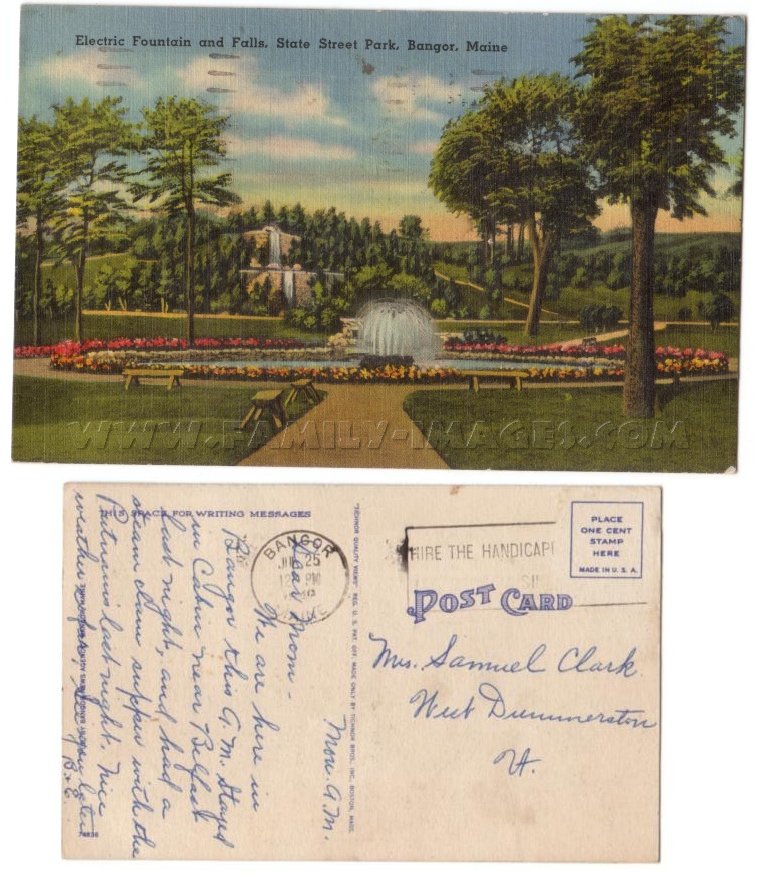 Electric Fountain and Falls, State Street Park, Bangor, Maine
WWW.FAMILY-IMAGES.COM
THIS SPACE FOR WRITING MESSAGES
Mon. A.M.
Dear Mom -
We are here in
Bangor this A.M. Stayed
in Cabin near Belfast
last night, and had a
steam clam supper with the
Putnams last night. Nice
weather so far. See you later
B + E
74836
"TICHNOR QUALITY VIEWS," REG. U. S. PAT. OFF. MADE ONLY BY TICHNOR BROS., INC., BOSTON, MASS.
BANGOR
25
PM
MAINE
HIRE THE HANDICAP
PLACE
ONE CENT
STAMP
HERE
MADE IN U. S. A.
POST CARD
Mrs. Samuel Clark
West Dummerston
Vt.